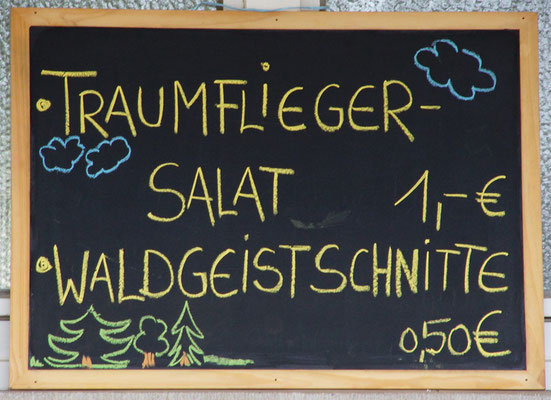 • TRAUMFLiEGER-
SALAT 1,-€
• WALDGEiSTSCHNiTTE
0,50€